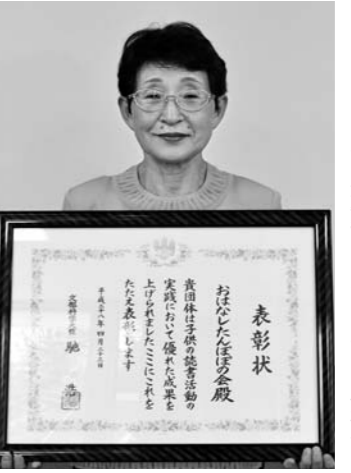 表彰状
おはなしたんぽぽの会殿
貴団体は子供の読書活動の
実践において優れた成果を
上げられましたここにこれを
たたえ表彰します
平成二十八年四月二十三日
文部科学大臣 馳 浩